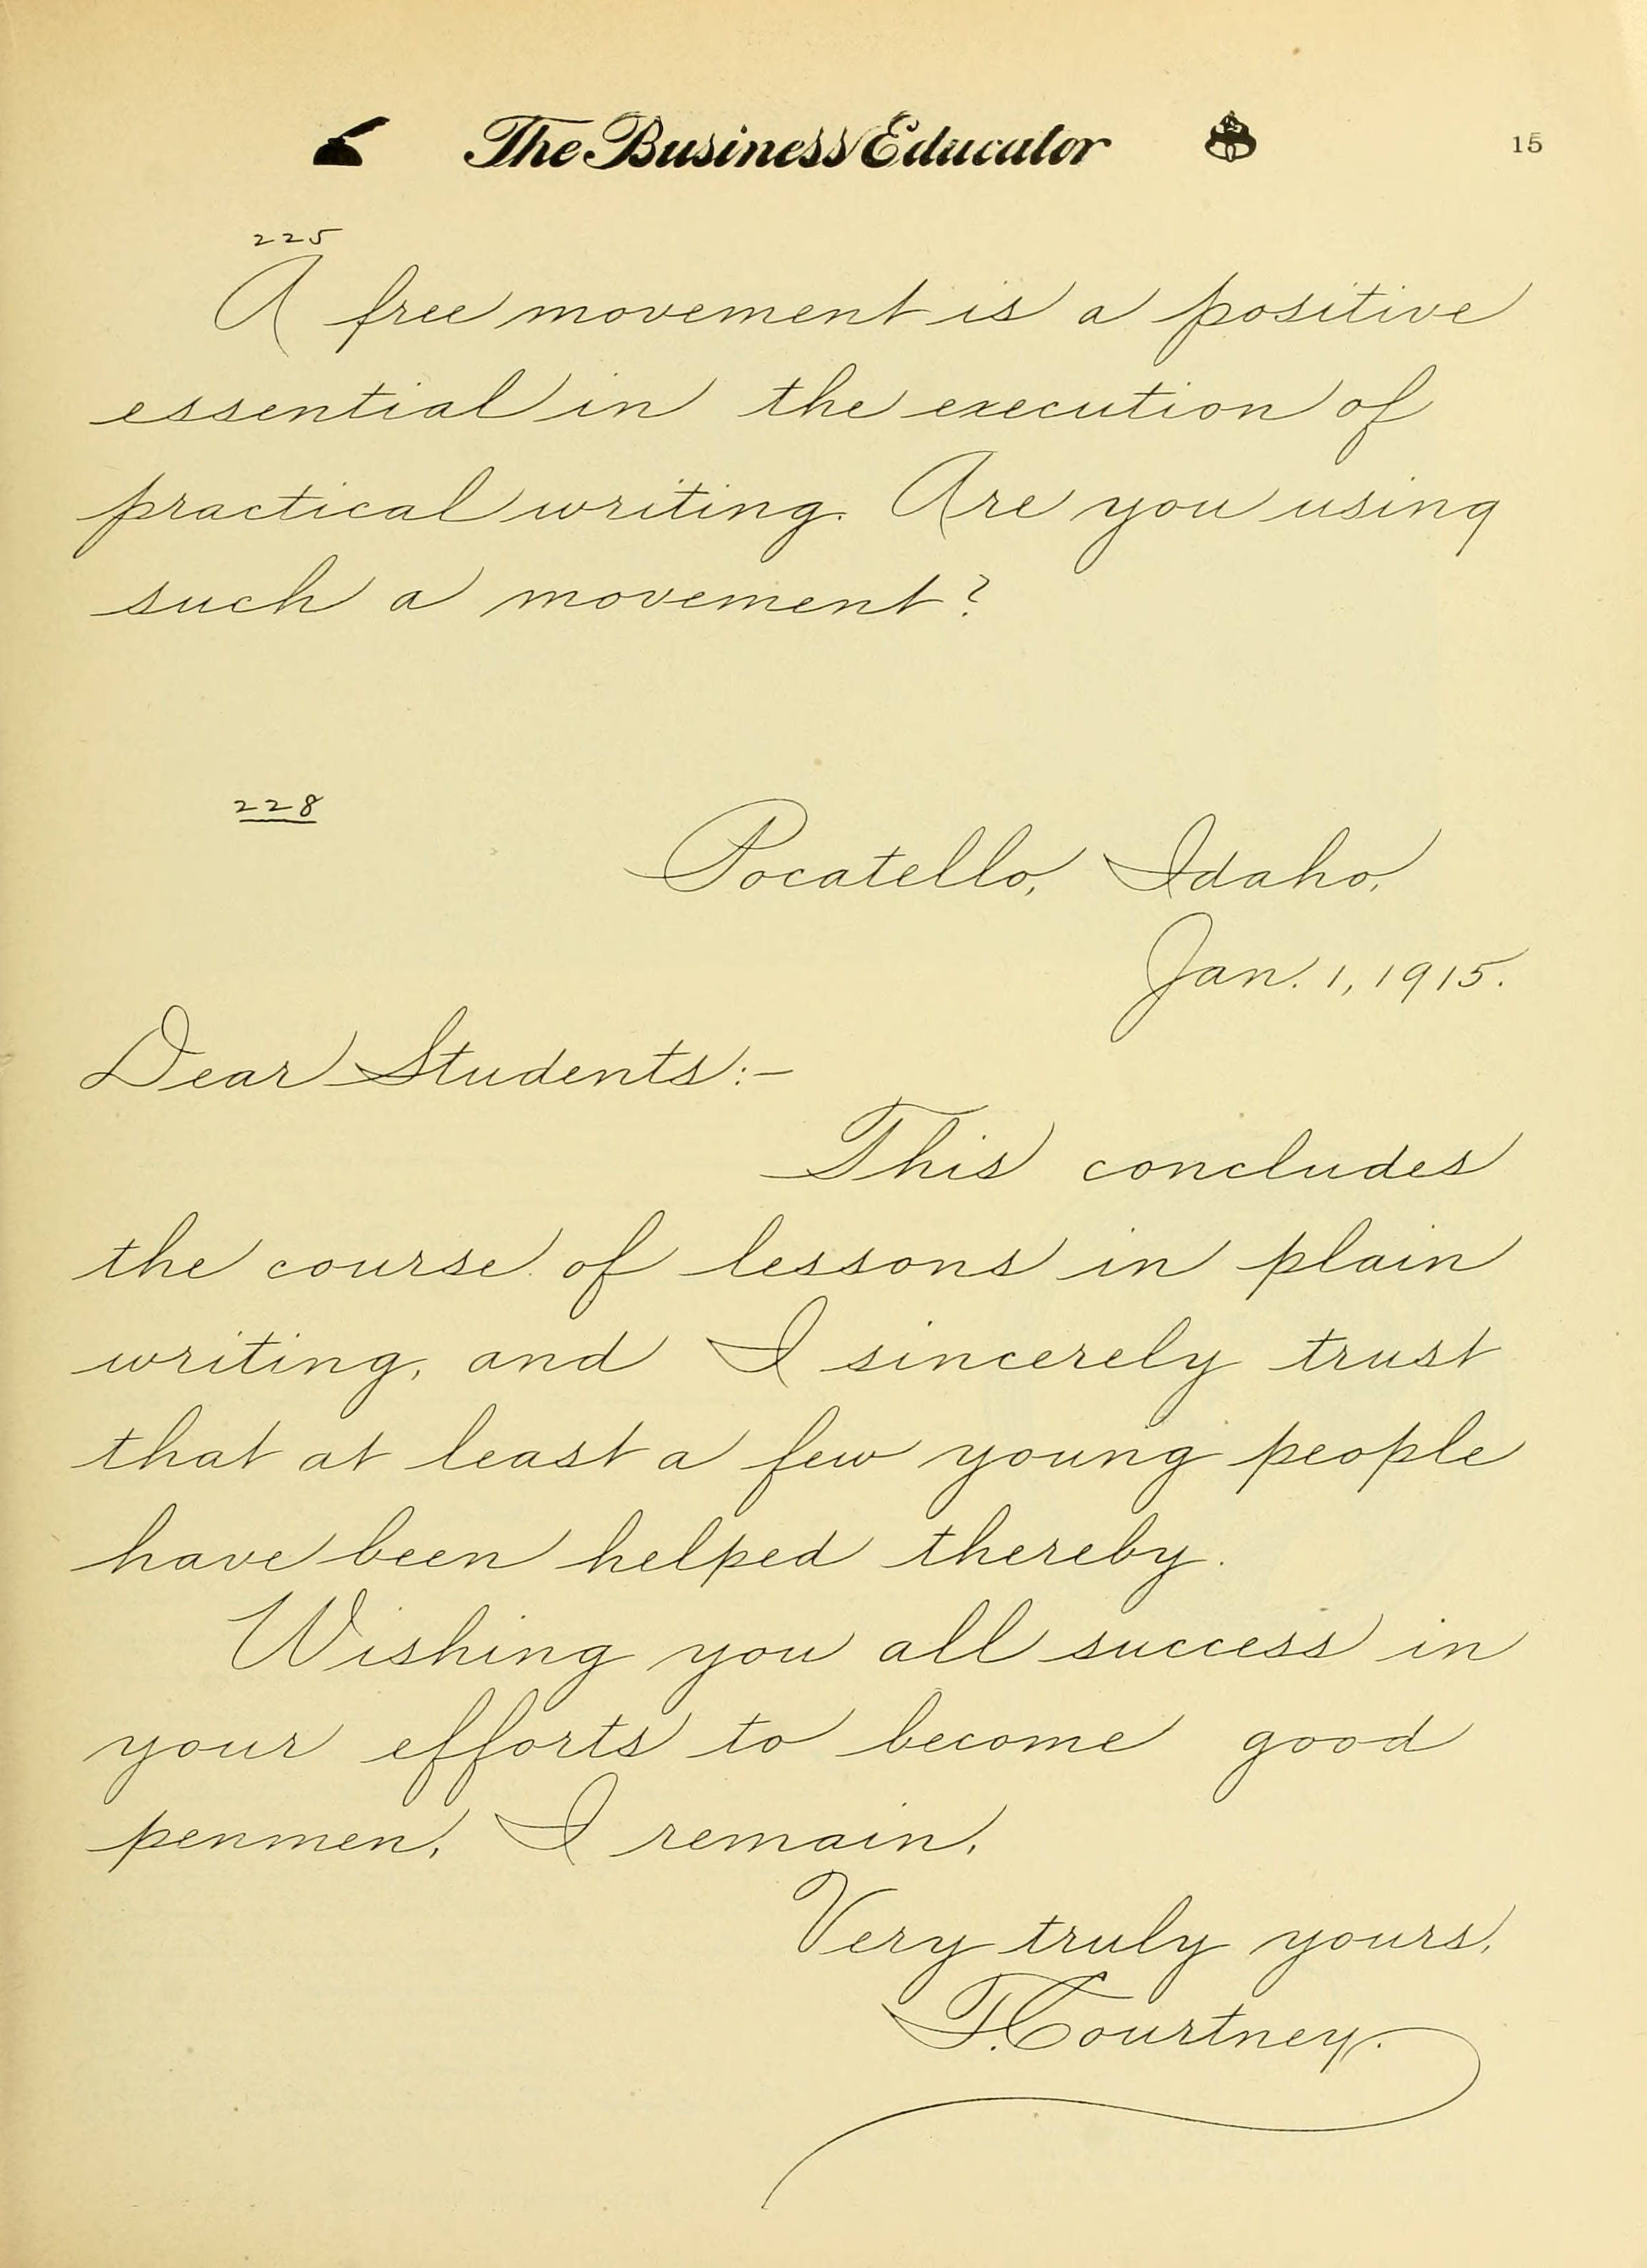 The Business Educator 15
225
A free movement is a positive
essential in the execution of
practical writing. Are you using
such a movement?
228
Pocatello, Idaho,
Jan. 1, 1915.
Dear Students:—
This concludes
the course of lessons in plain
writing, and I sincerely trust
that at least a few young people
have been helped thereby.
Wishing you all success in
your efforts to become good
penmen, I remain,
Very truly yours,
F. Courtney.